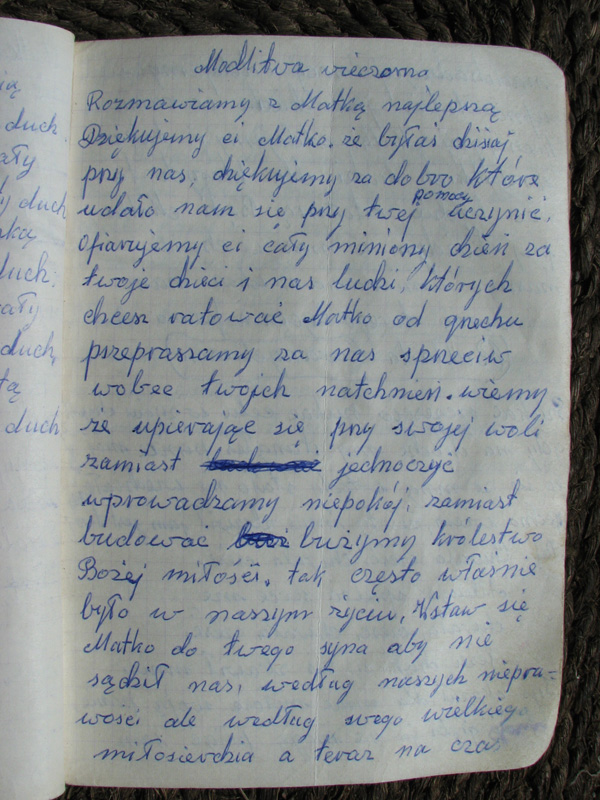 ią
duch.
ały
y duch
ką
duch.
ały
duch,
tą
duch
Modlitwa wieczorna
Rozmawiamy z Matką najlepszą
Dziękujemy ci Matko. że byłaś dzisiaj
przy nas, dziękujemy za dobro które
pomocy
udało nam się przy twej uczynić.
Ofiarujemy ci cały miniony dzień za
twoje dzieci i nas ludzi, których
chcesz ratować Matko od grzechu
przepraszamy za nas sprzeciw
wobec twojch natchnień. wiemy
że upierając się przy swojej woli
zamiast jednoczyć
wprowadzamy niepokój, zamiast
budować burzymy królestwo
Bożej miłości. tak często właśnie
było w naszym życiu, Wstaw się
Matko do twego syna aby nie
sądził nas, według naszych niepra-
wości ale według swego wielkiego
miłosierdzia a teraz na czas